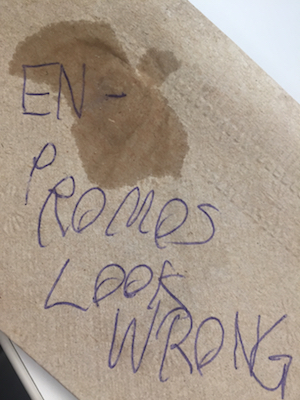 EN-
PROMOS
LOOK
WRONG